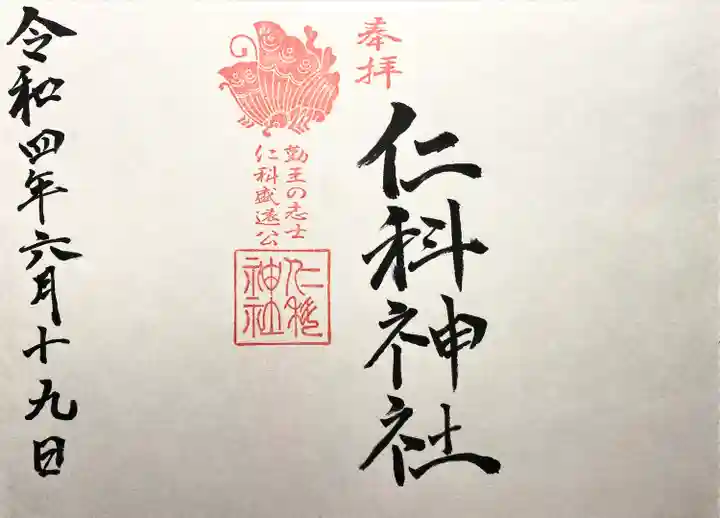 奉拝
仁科神社
勤王の志士
仁科盛遠公
仁科
神社
令和四年六月十九日